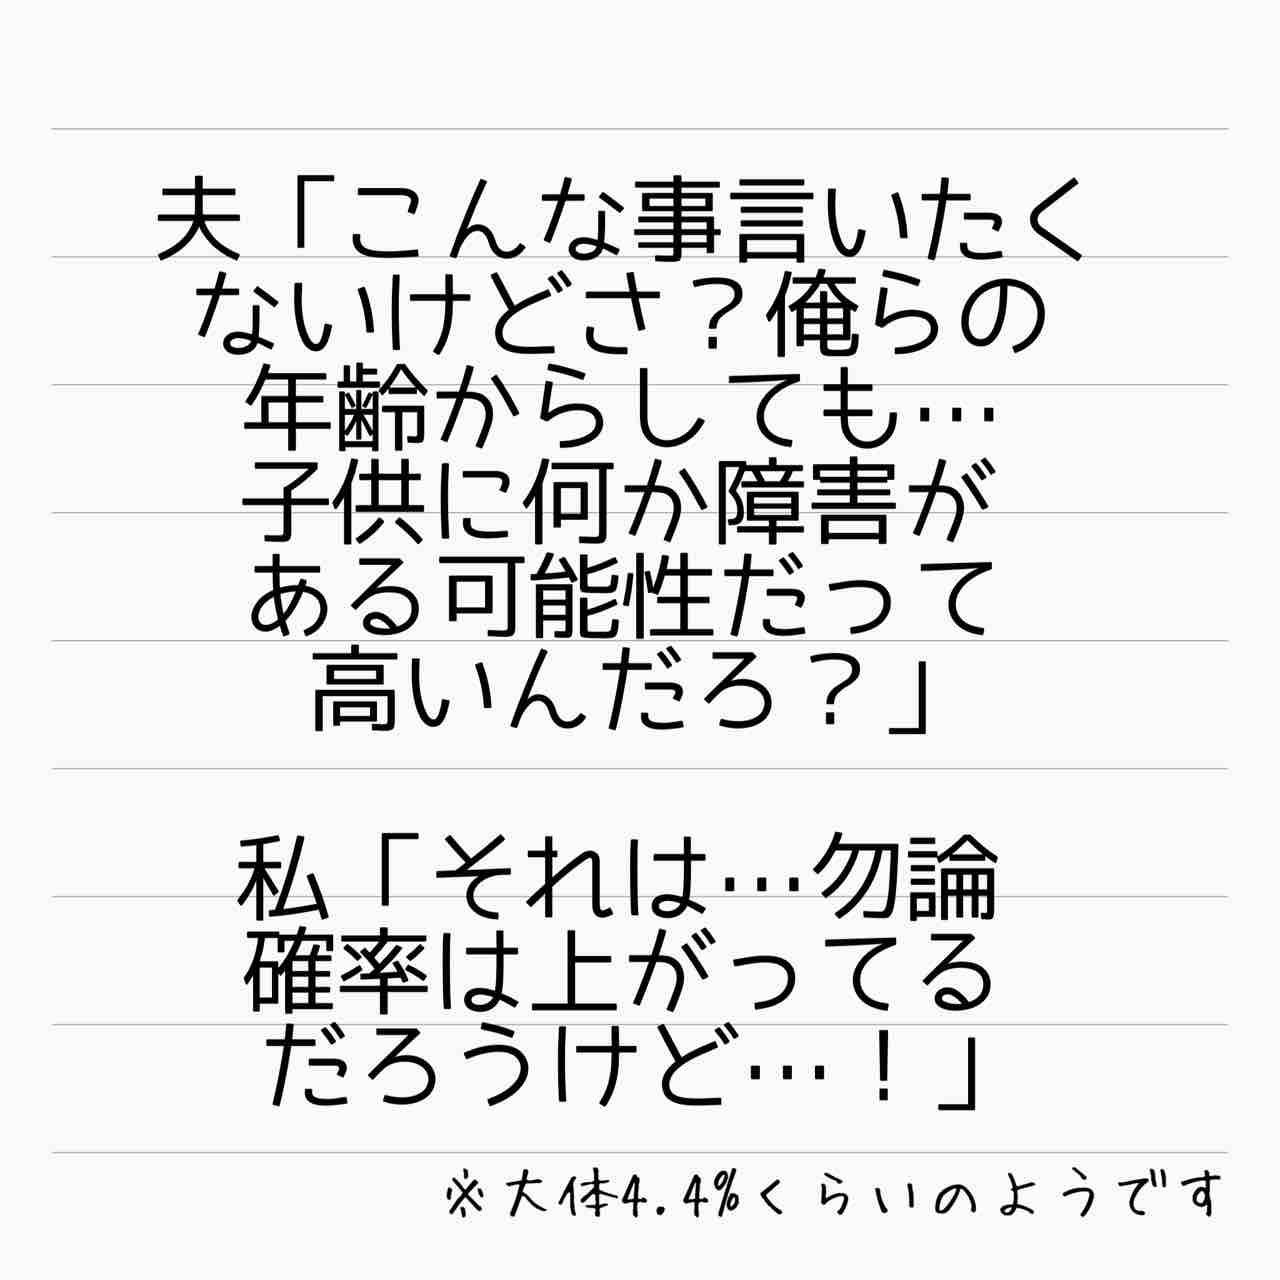 夫「こんな事言いたく
ないけどさ？俺らの
年齢からしても…
子供に何か障害が
ある可能性だって
高いんだろ？」
私「それは…勿論
確率は上がってる
だろうけど…！」
※大体4.4%くらいのようです